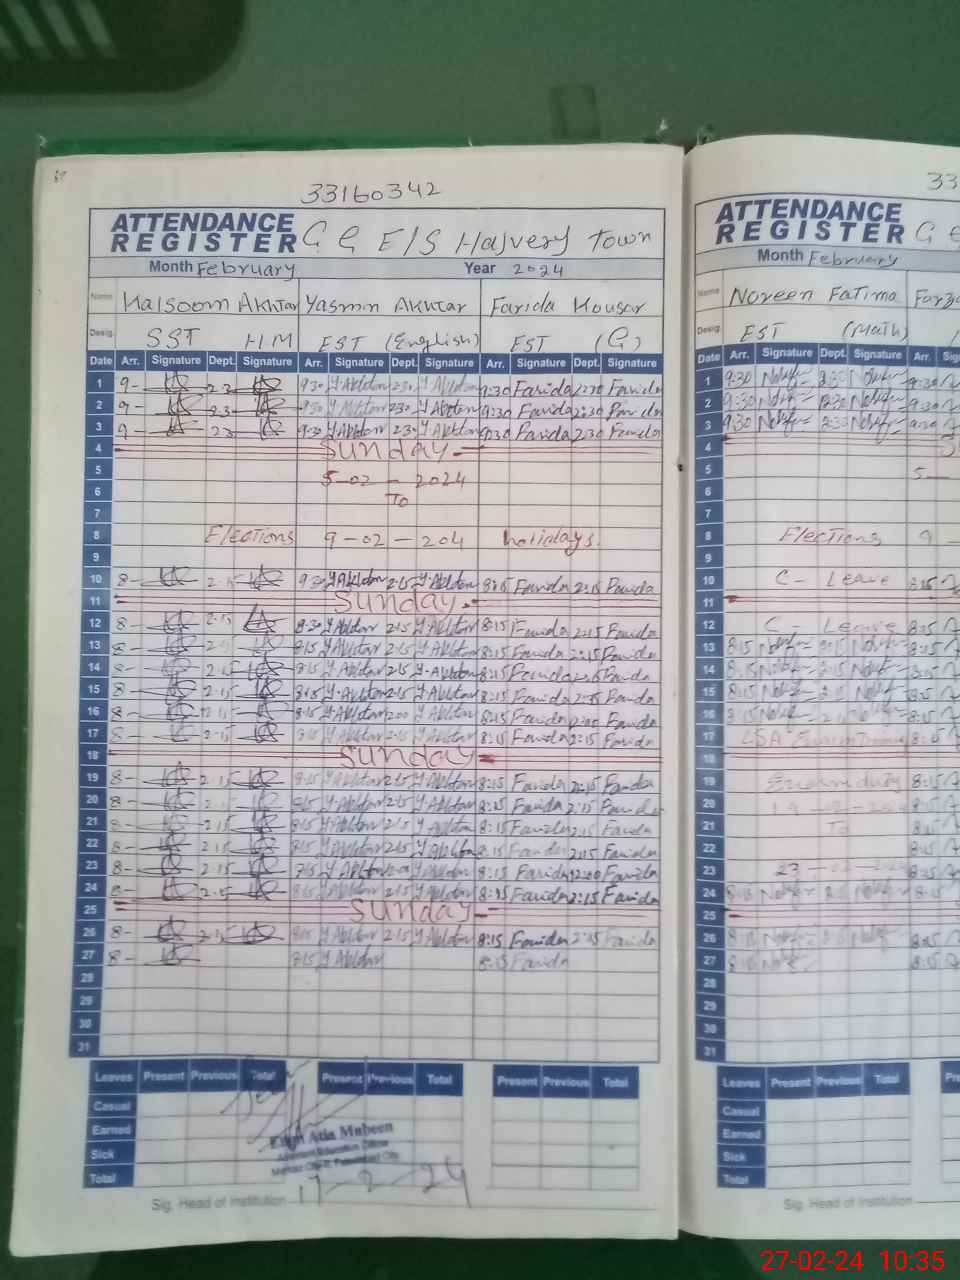 33160342
ATTENDANCE REGISTER G G E/S Halvery Town
Month February Year 2024
Name Kalsoom Akhtar Yasmin Akhtar Farida Kousar
Desig. SST H.M EST (English) EST (G)
Date Arr. Signature Dept. Signature Arr. Signature Dept. Signature Arr. Signature Dept. Signature
1 9- 2.3 9:30 Y Akhtar 2:30 Y Akhtar 9:30 Farida 2:30 Farida
2 9- 2.3 9:30 Y Akhtar 2:30 Y Akhtar 9:30 Farida 2:30 Farida
3 9- 2.3 9:30 Y Akhtar 2:30 Y Akhtar 9:30 Farida 2:30 Farida
4 Sunday
5 5-02-2024
6 To
7
8 Elections 9-02-204 holidays.
9
10 8- 2.15 9:30 Y Akhtar 2:15 Y Akhtar 8:15 Farida 2:15 Farida
11 Sunday
12 8- 2.15 8:30 Y Akhtar 2:15 Y Akhtar 8:15 Farida 2:15 Farida
13 8- 8:15 Y Akhtar 2:15 Y Akhtar 8:15 Farida 2:15 Farida
14 8- 2.15 8:15 Y Akhtar 2:15 Y-Akhtar 8:15 Farida Farida
15 8- 2.15 8:15 Y-Akhtar 2:15 Y-Akhtar 8:15 Farida 2:15 Farida
16 8- 8:15 Y Akhtar 2:00 Y Akhtar 8:15 Farida 2:00 Farida
17 8- 2.15 Y Akhtar 2:15 Y Akhtar 8:15 Farida 2:15 Farida
18 Sunday
19 8- 2.15 8:15 Y Akhtar 2:15 Y Akhtar 8:15 Farida 2:15 Farida
20 8- 2.15 8:15 Y Akhtar 2:15 Y Akhtar 8:15 Farida 2:15 Farida
21 8- 2.15 8:15 Y Akhtar 2:15 Y Akhtar 8:15 Farida 2:15 Farida
22 8- 2.15 8:15 Y Akhtar 2:15 Y Akhtar 8:15 Farida 2:15 Farida
23 8- 2.15 8:15 Y Akhtar Y Akhtar 8:15 Farida 12:00 Farida
24 8- 2.15 8:15 Y Akhtar 2:15 Y Akhtar 8:15 Farida 2:15 Farida
25 Sunday
26 8- 2.15 8:15 Y Akhtar 2:15 Y Akhtar 8:15 Farida 2:15 Farida
27 8- 8:15 Y Akhtar 8:15 Farida
28
29
30
31
Leaves Present Previous Total Present Previous Total Present Previous Total
Casual
Earned
Sick
Total
Atia Mubeen
Assistant Education Officer
17-2-24
Sig. Head of Institution
33
ATTENDANCE REGISTER G
Month February
Name Noreen Fatima
Desig. EST (Math)
Date Arr. Signature Dept. Signature Arr.
1 9:30 2:30
2 9:30 2:30
3 9:30 2:30
4 S
5 5
6
7
8 Elections 9
9
10 C- Leave 8:15
11
12 C- Leave 8:15
13 8:15 2:15 8:15
14 8:15 2:15 8:15
15 8:15 2:15 8:15
16 8:15 8:15
17 LSA 8:15
18
19 duty 8:15
20 8:15
21 To 8:15
22 8:15
23 23 8:15
24 8:15 8:15
25
26 8:15 8:15
27 8:15 8:15
28
29
30
31
Leaves Present Previous Total
Casual
Earned
Sick
Total
Sig. Head of Institution
27-02-24 10:35